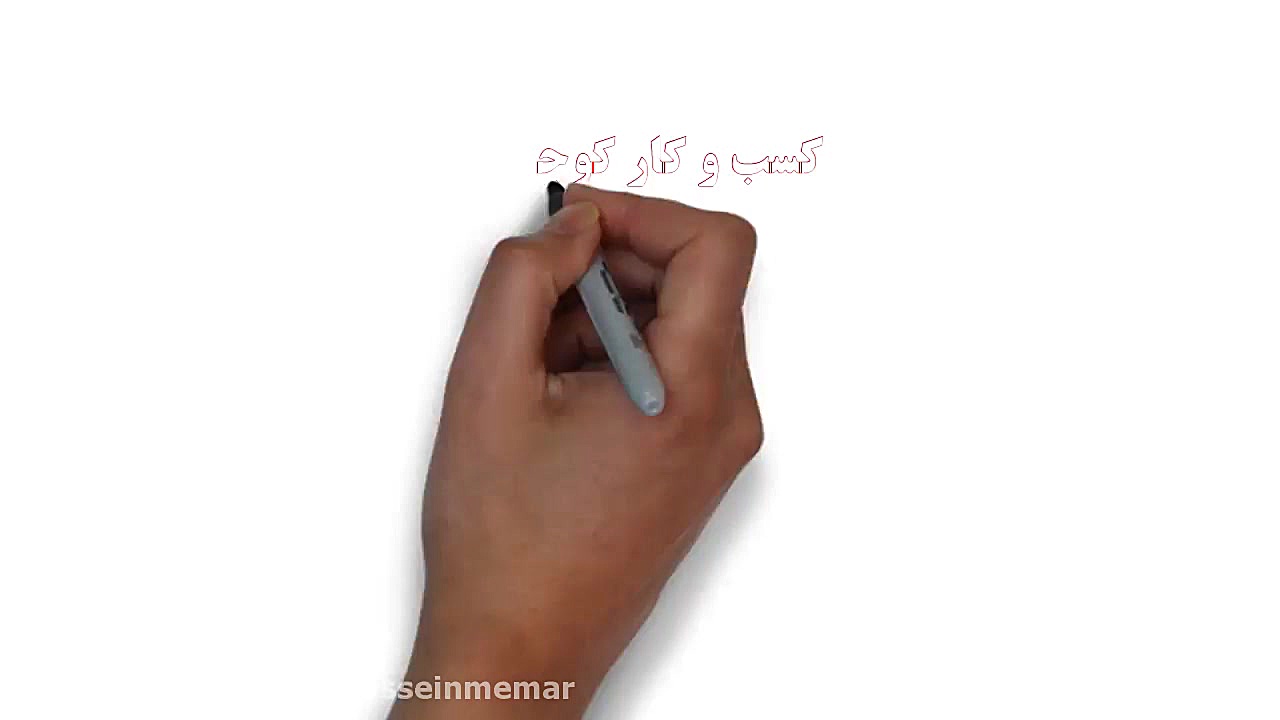 کسب و کار کوچ
sseinmemar